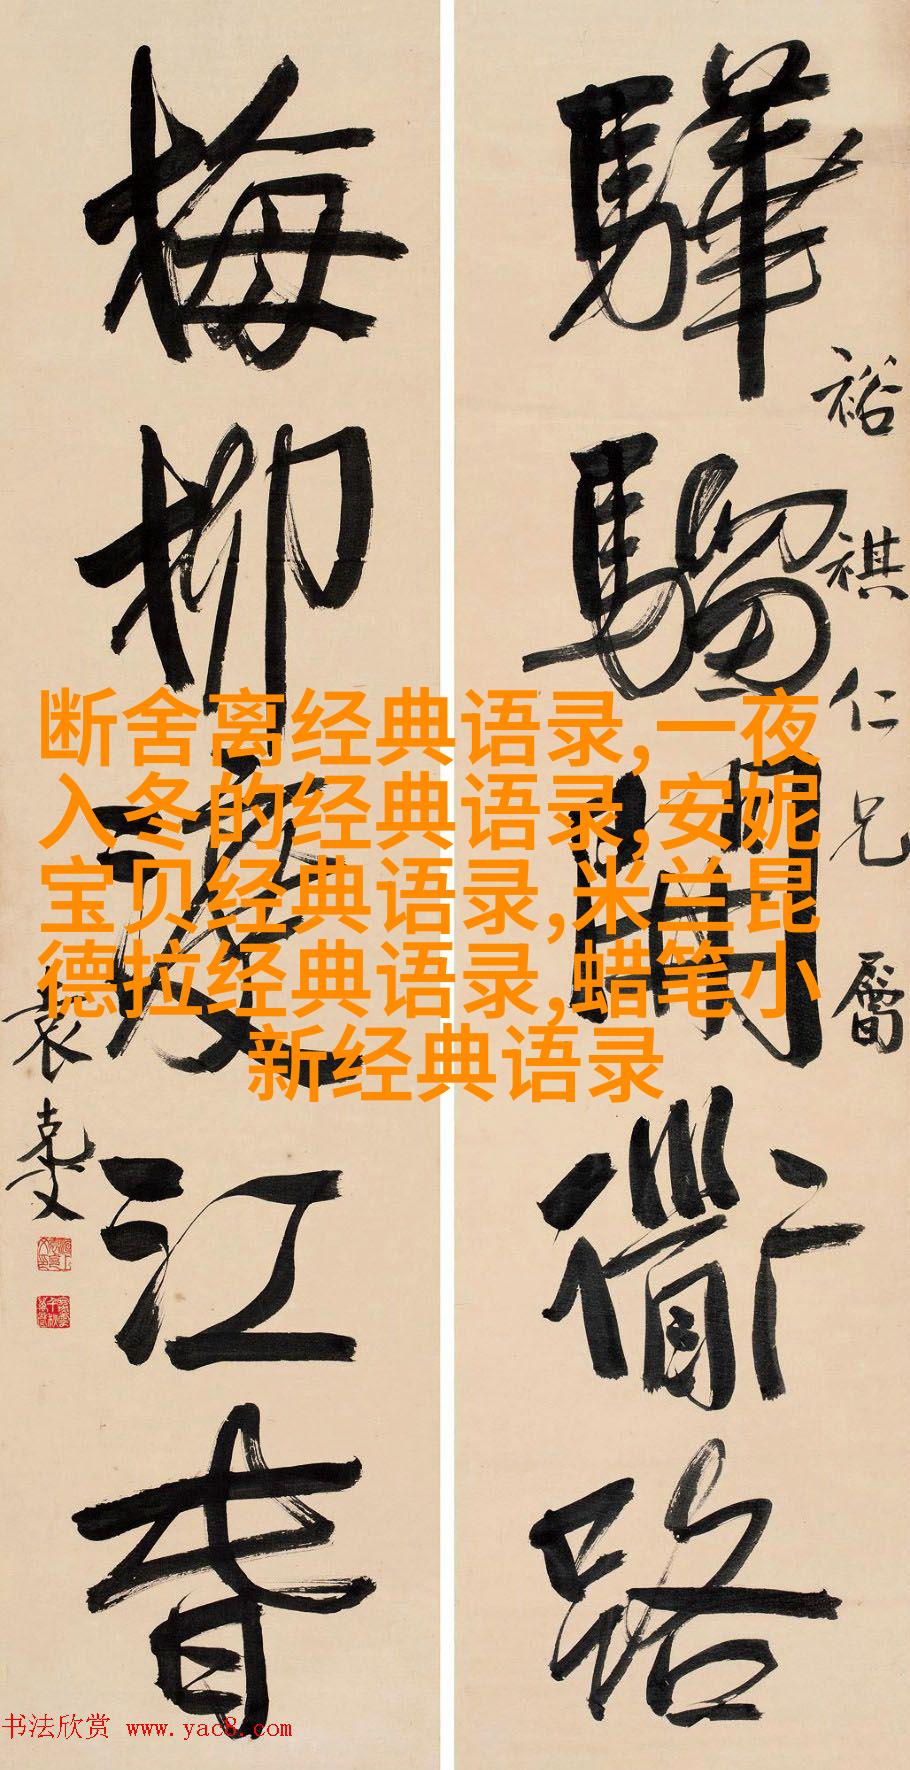 驊騮開衜路
裕祺仁兄屬
梅柳渡江春
袁克文
断舍离经典语录,一夜
入冬的经典语录,安妮
宝贝经典语录,米兰昆
德拉经典语录,蜡笔小
新经典语录
书法欣赏 www.yac8.com